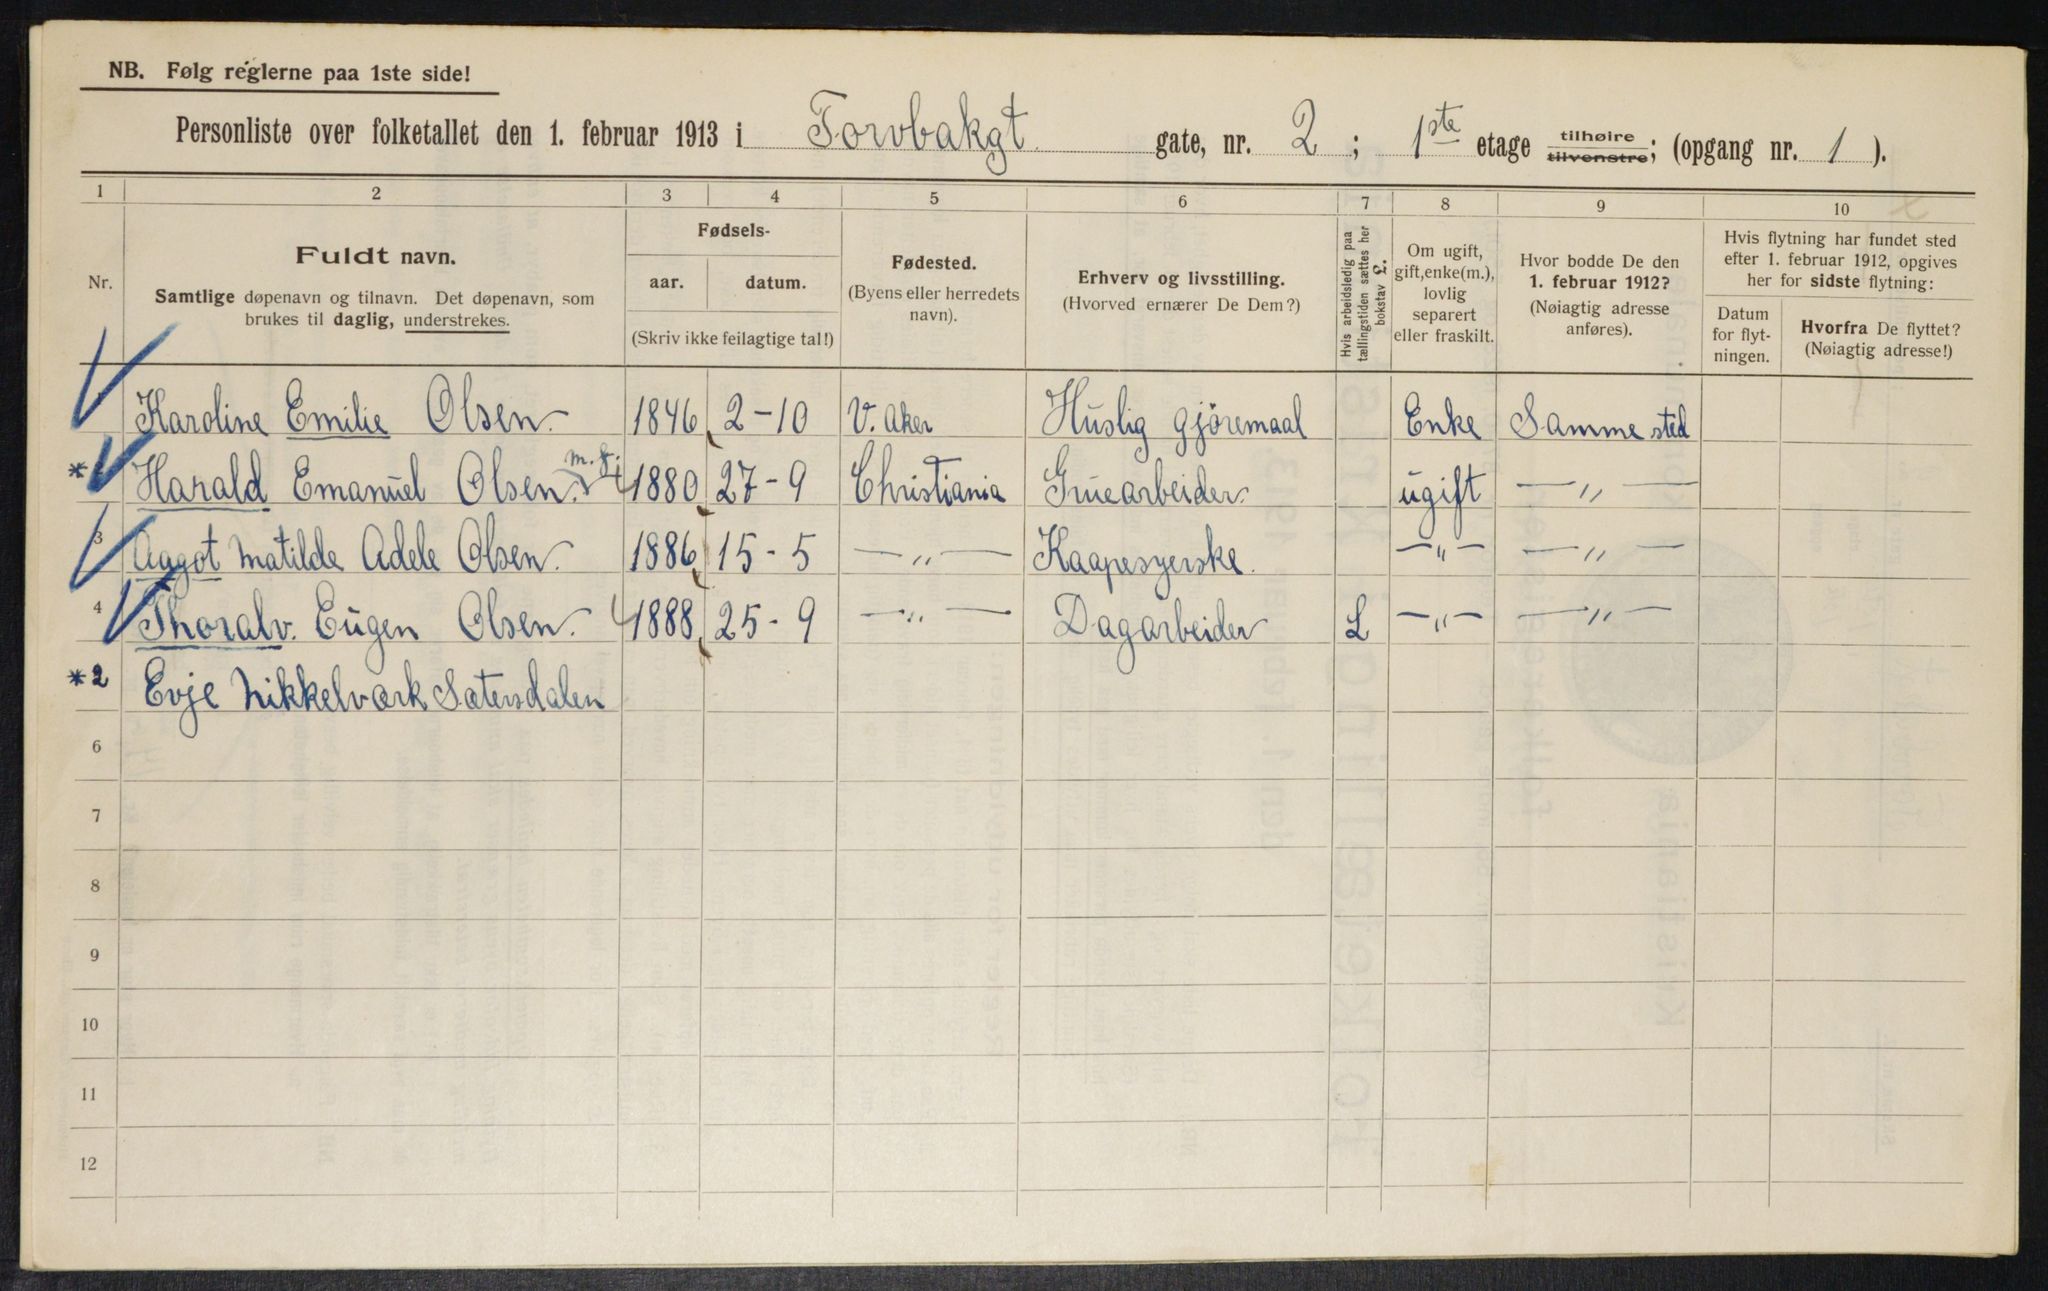 NB. Følg reglerne paa 1ste side!
Personliste over folketallet den 1. februar 1913 i Torvbakgt gate, nr. 2 ; 1ste etage tilhøire tilvenstre; (opgang nr. 1 ).
1 2 3 4 5 6 7 8 9 10
Nr.
Fuldt navn.
Samtlige døpenavn og tilnavn. Det døpenavn, som
brukes til daglig, understrekes.
Fødsels-
aar. datum.
(Skriv ikke feilagtige tal!)
Fødested.
(Byens eller herredets
navn).
Erhverv og livsstilling.
(Hvorved ernærer De Dem?)
Hvis arbeidsledig paa
tællingstiden sættes her
bokstav L.
Om ugift,
gift, enke(m.),
lovlig
separert
eller fraskilt.
Hvor bodde De den
1. februar 1912?
(Nøiagtig adresse
anføres).
Hvis flytning har fundet sted
efter 1. februar 1912, opgives
her for sidste flytning:
Datum
for flyt-
ningen.
Hvorfra De flyttet?
(Nøiagtig adresse!)
Karoline Emilie Olsen. 1846 2-10 V. Aker Huslig gjøremaal Enke Samme sted
* Harald Emanuel Olsen. m. f. 1880 27-9 Christiania Gruearbeider. ugift —„—  —„—
3 Aagot Matilde Adele Olsen. 1886 15-5 —„— Kaapesyerske. —„— —„—
4 Thoralv. Eugen Olsen. 1888 25-9 —„— Dagarbeider L —„— —„—
*2 Evje Nikkelværk Sætersdalen
6
7
8
9
10
11
12